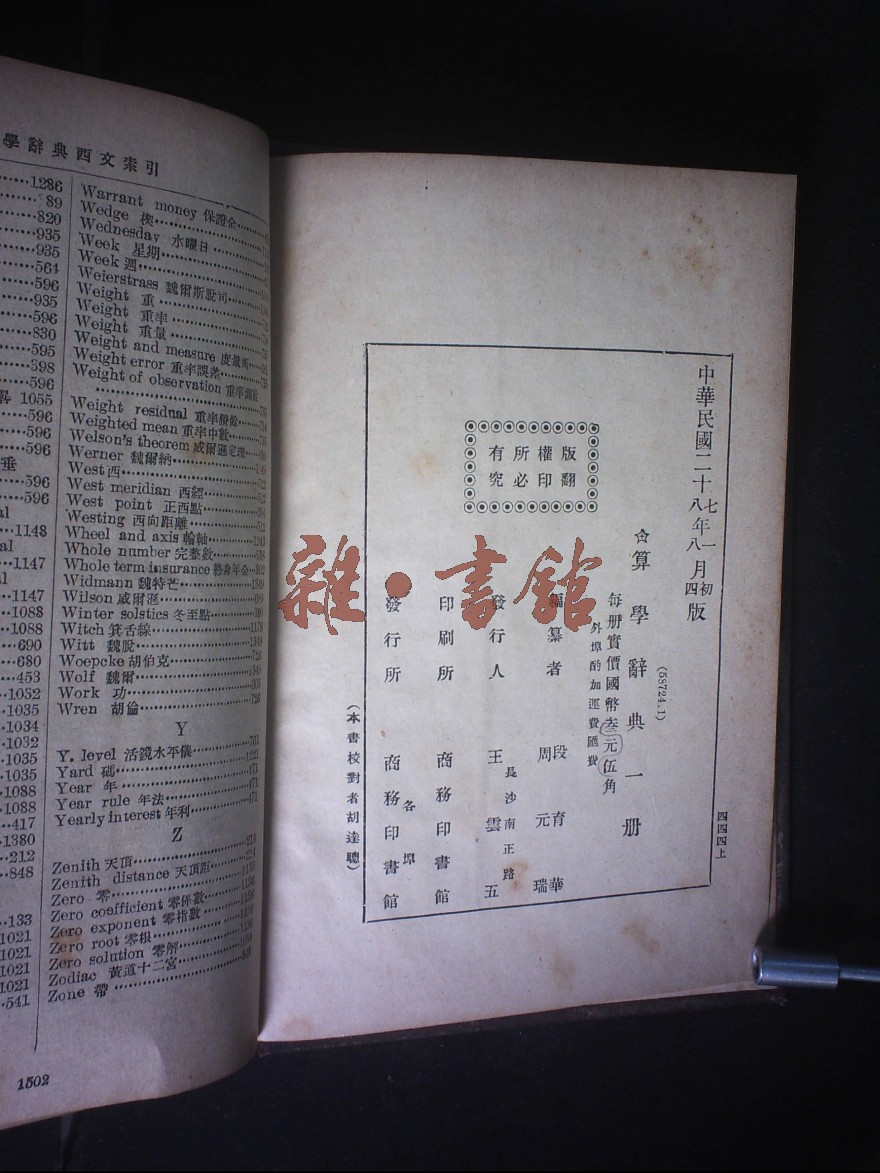 學辭典西文索引
1286
89
820
935
935
564
596
935
596
830
595
398
596
1055
596
596
596
垂
596
596
al
1148
al
1147
al
1147
1088
1088
690
680
453
1032
1035
1034
1032
1035
1035
1088
1088
417
1380
212
848
133
1021
1021
1021
1021
541
Warrant money 保證金
Wedge 楔
Wednesday 水曜日
Week 星期
Week 週
Weierstrass 魏爾斯脫司
Weight 重
Weight 重率
Weight 重量
Weight and measure 度量衡
Weight error 重率誤差
Weight of observation 重率測數
Weight residual 重率殘餘
Weighted mean 重率中數
Welson's theorem 威爾遜定理
Werner 魏爾納
West 西
West meridian 西經
West point 正西點
Westing 西向距離
Wheel and axis 輪軸
Whole number 完整數
Whole term insurance 終身年金
Widmann 魏特芒
Wilson 威爾遜
Winter solstics 冬至點
Witch 箕舌線
Witt 魏脫
Woepcke 胡伯克
Wolf 魏爾
Work 功
Wren 胡倫
Y
Y. level 活鏡水平儀
Yard 碼
Year 年
Year rule 年法
Yearly interest 年利
Z
Zenith 天頂
Zenith distance 天頂距
Zero 零
Zero coefficient 零係數
Zero exponent 零指數
Zero root 零根
Zero solution 零解
Zodiac 黃道十二宮
Zone 帶
1502
中華民國二十七年一月初版
八年八月四版
版權所有
翻印必究
算學辭典一冊
(58724.1)
每冊實價國幣叁元伍角
外埠酌加運費匯費
編纂者 段育華
周元瑞
發行人 王雲五
長沙南正路
印刷所 商務印書館
發行所 商務印書館
各埠
(本書校對者胡達聰)
四四四上
雜·書館